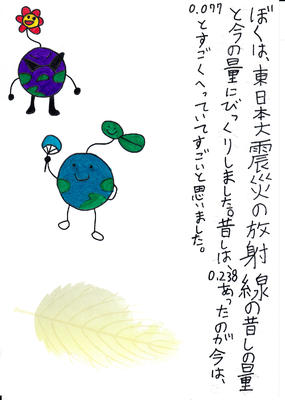 ぼくは、東日本大震災の放射線の昔しの量
と今の量にびっくりしました。昔しは、0.238あったのが今は、
0.077とすごくへっていてすごいと思いました。